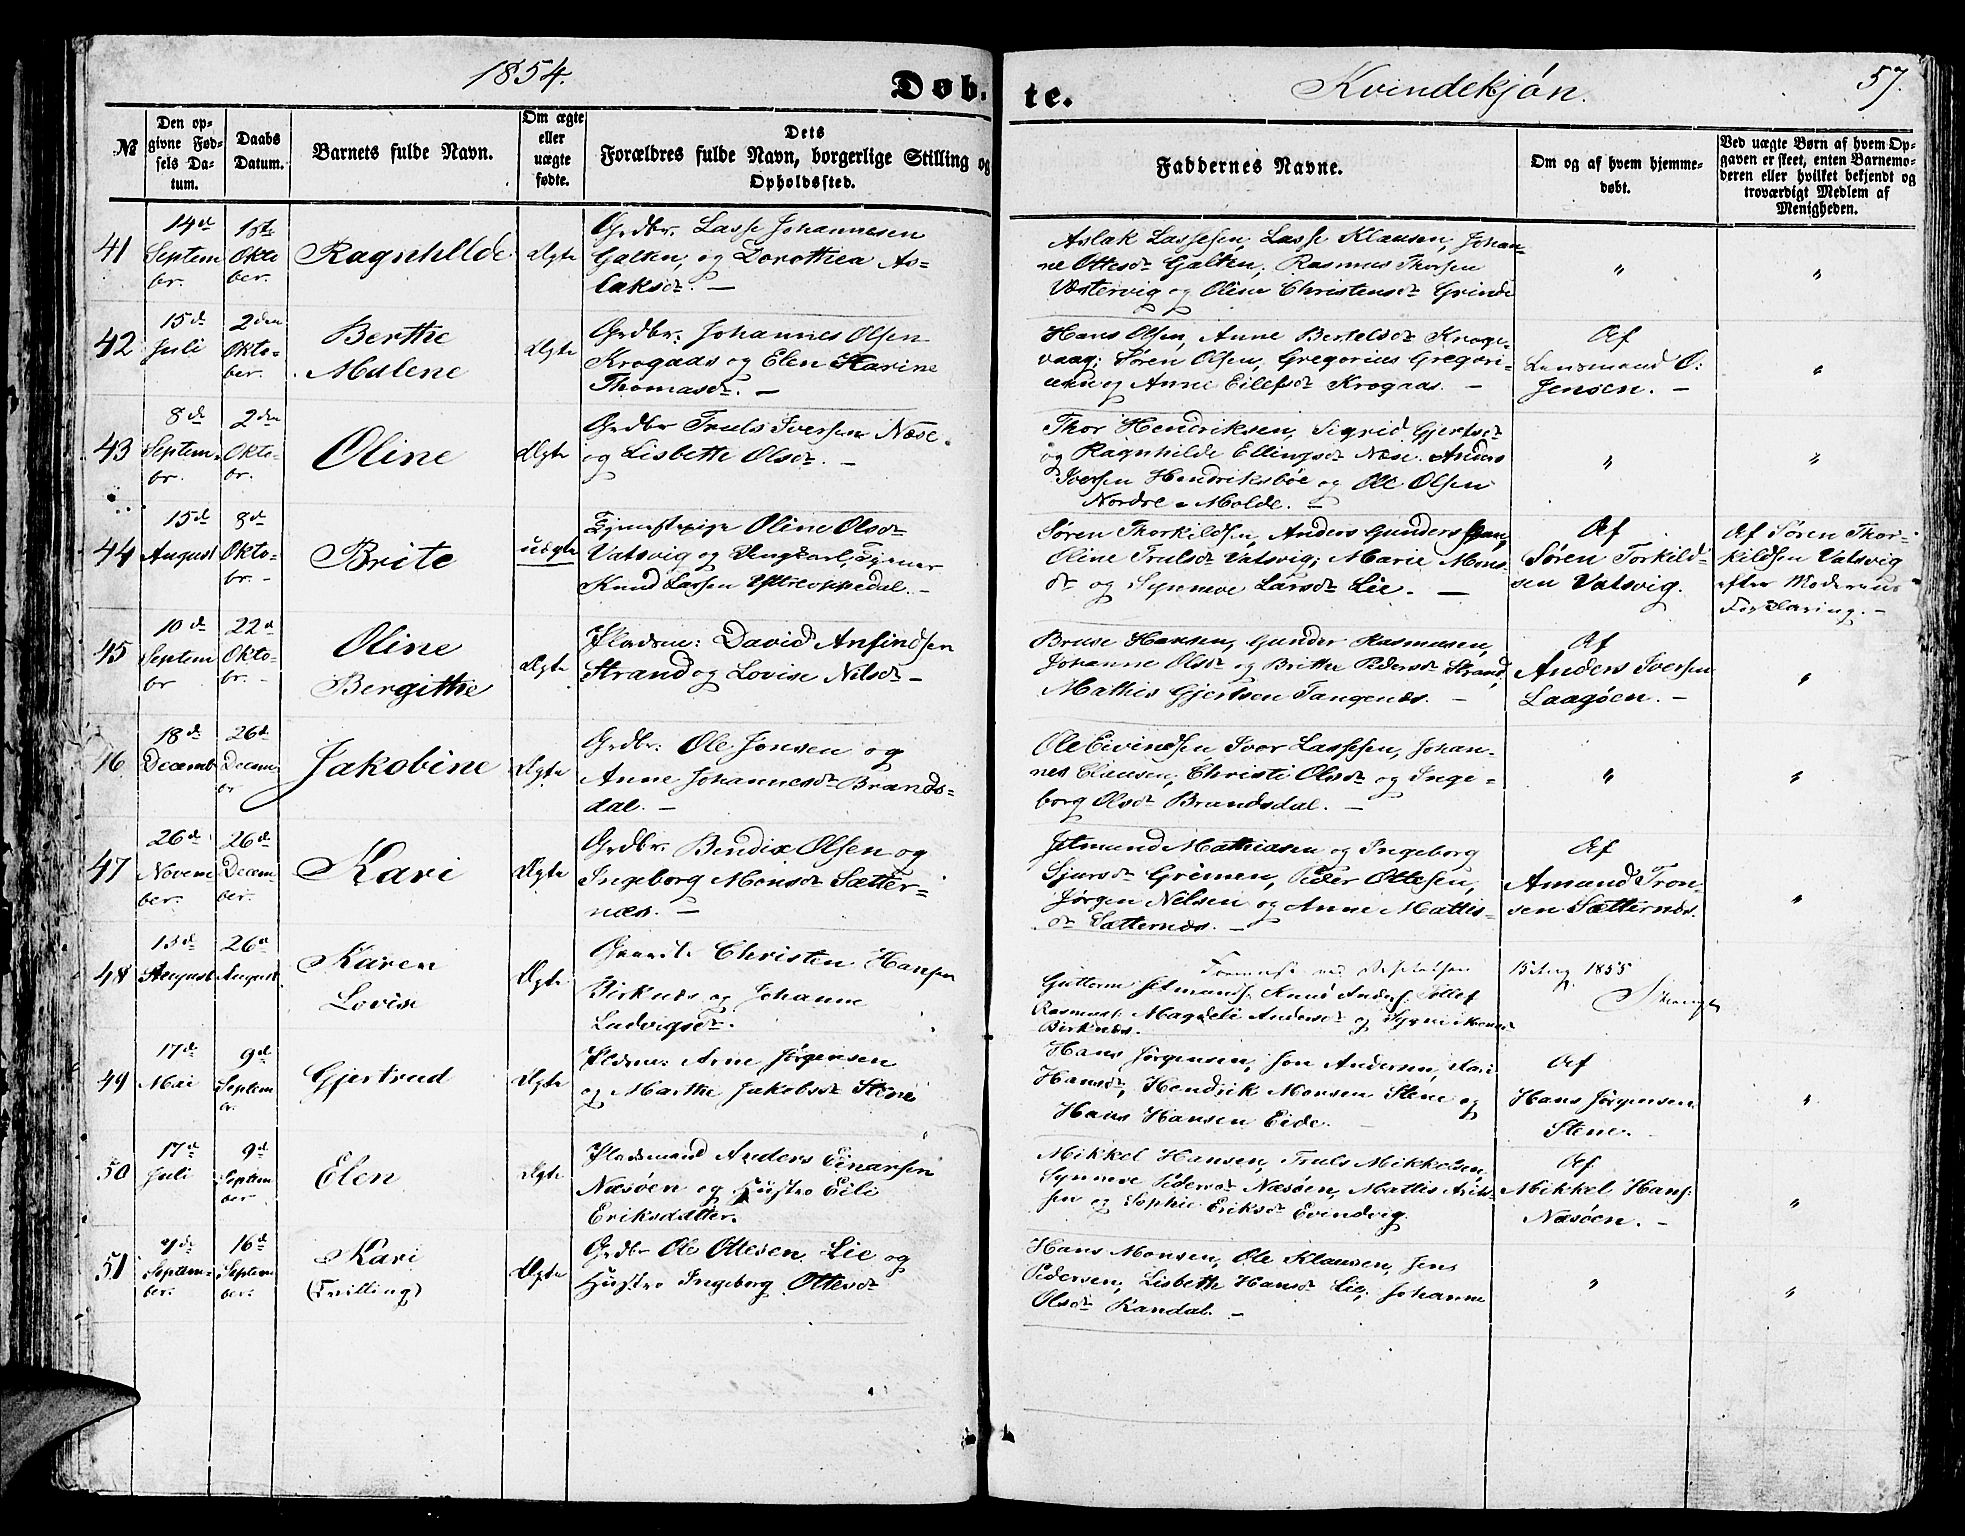 1854.
Døb-
te.
Kvindekjön.
57.
№
Den op-
givne Fød-
sels Da-
tum.
Daabs
Datum.
Barnets fulde Navn.
Om ægte
eller
uægte
fødte.
Dets
Forældres fulde Navn, borgerlige Stilling og
Opholdssted.
Faddernes Navne.
Om og af hvem hjemme-
døbt.
Ved uægte Børn af hvem Op-
gaven er skeet, enten Barnemo-
deren eller hvilket bekjendt og
troværdigt Medlem af
Menigheden.
41
14de
Septem
br.
1ste
Okto
ber.
Ragnhilde
Ægte
Grdbr. Lasse Johannesen
Galten, og Dorothea As-
laksdr. —
Aslak Lassesen, Lasse Klausen, Johan-
ne Ottesdr Galten, Rasmus Thorsen
Væstervig og Oline Christensdr Grinde
"
"
42
15de
Juli
2den
Okto-
ber.
Berthe
Malene
Ægte
Grdbr: Johannes Olsen
Krogaas og Elen Karine
Thomasdr. —
Hans Olsen, Anne Bertelsdr Kroge-
vaag; Søren Olsen, Gregorius Gregori-
og Anne Eilefsdr Krogaas. —
Af
Lensmand O:
Jensen. —
"
43
8de
Septem-
br.
2den
Okto-
br.
Oline
Ægte
Grdbr Truls Iversen Næse
og Lisbethe Olsdr. —
Thor Hendriksen, Sigrid Gjertsdr
og Ragnhilde Ellingsdr Næse. Anders
Iversen Hendriksbøe og Ole Olsen
Nordre Molde. —
"
"
44
15de
August
8de
Okto-
br. -
Brite
uægte
Tjenestepige Oline Olsdr
Vatsvig og Ungkarl, Tjener
Knud Larsen Yttreoppedal. —
Søren Thorkildsen, Anders Gundersen,
Oline Trulsdr Vatsvig; Marie Mons-
dr og Synneve Larsdr Lie. —
Af
Søren Torkild-
sen Vatsvig.
Af Søren Thor-
kildsen Vatsvig
efter Moderens
Forklaring. —
45
10de
Septem
br
22de
Okto-
br. -
Oline
Bergithe
Ægte
Pladsm: David Anfindsen
Strand og Lovise Nilsdr —
Bruse Hansen, Gunder Rasmusen,
Johanne Olsdr og Brithe Pedersdr Strand,
Mathis Gjertsen Tangenæs. —
Af
Anders Iversen
Laagøen. —
"
46
18de
Decemb
26de
Decem
br
Jakobine
Ægte
Grdbr: Ole Jonsen og
Anne Johannesdr Brands-
dal. —
Ole Eivindsen, Ivar Lassesen, Johan-
nes Clausen, Christi Olsdr og Inge-
borg Olsdr Brandsdal. —
"
"
47
26de
Novem
ber.
26de
Decem-
ber.
Kari
Ægte
Grdbr. Bendix Olsen og
Ingeborg Monsdr Sætter-
næs. —
Jetmund Mathiasen og Ingeborg
Sjursdr Grimen, Peder Ottesen,
Jørgen Nilsen og Anne Mattis-
dr Sætternæs. —
Af
Amund Tron-
sen Sætternæs.
"
48
13de
August
26de
August
Karen
Lovise
Ægte
Christen Hansen
Birknæs og Johanne
Ludvigsdr.
ved
Bilag 1855
Guttorm Jetmunds. Knud Anders. Tollef
Rasmuss. Magdeli Andersdr og
Birknæs.
49
17de
Mai
9de
Septem
br.
Gjertrud
Ægte
Pladsm: Arne Jørgensen
og Marthe Jakobsdr Stene
Hans Jørgensen, Jon Andersen, Kari
Hansdr, Hendrik Monsen Stene og
Hans Hansen Eide. —
Af
Hans Jørgensen
Stene. —
"
50
17de
Juli
9de
Septem
ber
Elen
Ægte
Pladsmand Anders Einarsen
Næsøen og Hustro Eili
Eriksdatter.
Mikkel Hansen, Truls Mikkelsen,
Synneve Pedersdr Næsøen, Mattis
sen og Sophie Eriksdr Evindvig.
Af
Mikkel Hans:
Næsøen. —
"
51
7de
Septem-
ber.
16de
Septem
ber.
Kari
(Tvilling)
Ægte
Grdbr Ole Ottesen Lie og
Hustro Ingeborg Ottesdr
Hans Monsen, Ole Klausen, Jens
Pedersen, Lisbethe Hansdr Lie, Johanne
Olsdr Kandal. —
"
"